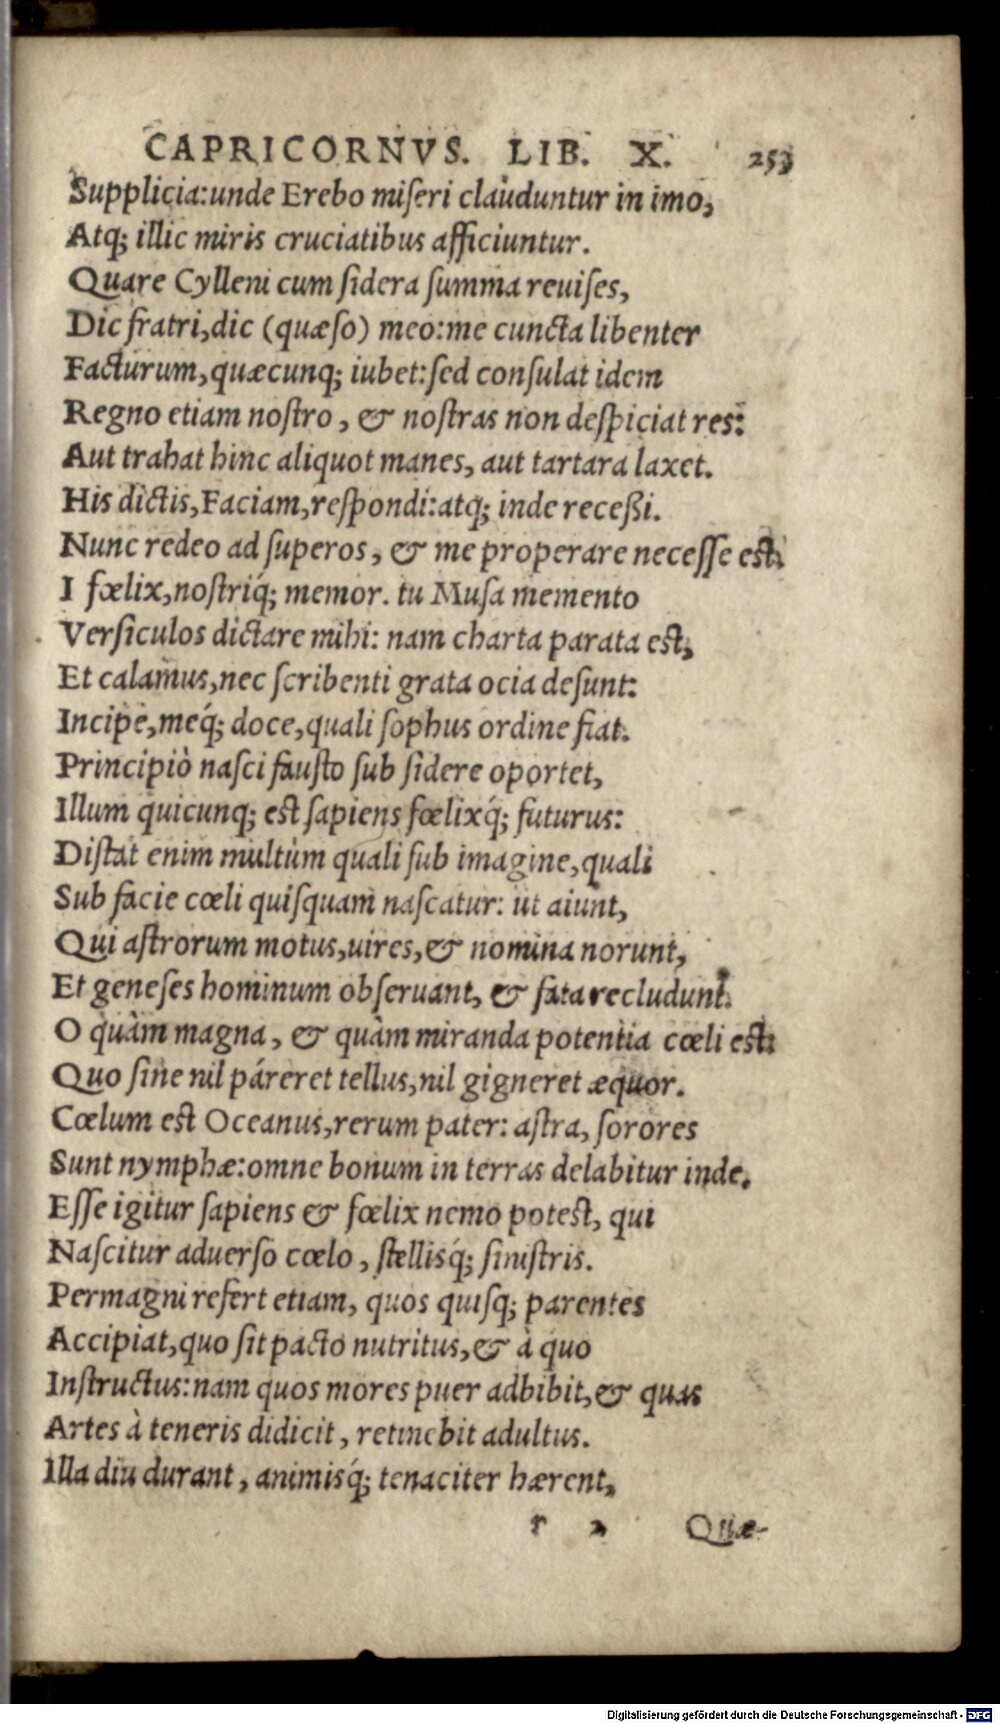 CAPRICORNVS. LIB. X. 253
Supplicia:unde Erebo miſeri clauduntur in imo,
Atq; illic miris cruciatibus afficiuntur.
Quare Cylleni cum ſidera ſumma reuiſes,
Dic fratri,dic (quæſo) meo:me cuncta libenter
Facturum,quæcunq; iubet:ſed conſulat idem
Regno etiam noſtro, & noſtras non deſpiciat res:
Aut trahat hinc aliquot manes, aut tartara laxet.
His dictis,Faciam,reſpondi:atq; inde receßi.
Nunc redeo ad ſuperos, & me properare neceſſe eſt.
I fœlix,noſtriq́; memor. tu Muſa memento
Verſiculos dictare mihi: nam charta parata eſt,
Et calamus,nec ſcribenti grata ocia deſunt:
Incipe,meq́; doce,quali ſophus ordine fiat.
Principiò naſci fauſto ſub ſidere oportet,
Illum quicunq; eſt ſapiens fœlixq́; futurus:
Diſtat enim multùm quali ſub imagine,quali
Sub facie cœli quiſquam naſcatur: ut aiunt,
Qui aſtrorum motus,uires,& nomina norunt,
Et geneſes hominum obſeruant, & fata recludunt.
O quàm magna, & quàm miranda potentia cœli eſt:
Quo ſine nil páreret tellus,nil gigneret æquor.
Cœlum eſt Oceanus,rerum pater: aſtra, ſorores
Sunt nymphæ:omne bonum in terras delabitur inde.
Eſſe igitur ſapiens & fœlix nemo poteſt, qui
Naſcitur aduerſo cœlo, ſtellisq́; ſiniſtris.
Permagni refert etiam, quos quiſq; parentes
Accipiat,quo ſit pacto nutritus,& à quo
Inſtructus:nam quos mores puer adbibit,& quas
Artes à teneris didicit, retinebit adultus.
Illa diu durant, animisq́; tenaciter hærent,
r 2 Quæ-
Digitalisierung gefördert durch die Deutsche Forschungsgemeinschaft - DFG